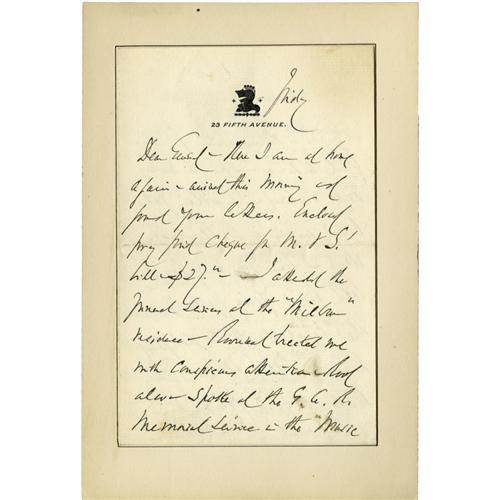 Friday
23 FIFTH AVENUE.
Dear Edward – Here I am at home
again – arrived this morning and
found your letters. Enclosed
pray find cheque for M. & S.'
bill – $27.00 – I attended the
funeral services at the "Milburn"
residence – Roosevelt treated me
with conspicuous attention – Root
also – Spoke at the G. A. R.
Memorial Service in the "Music